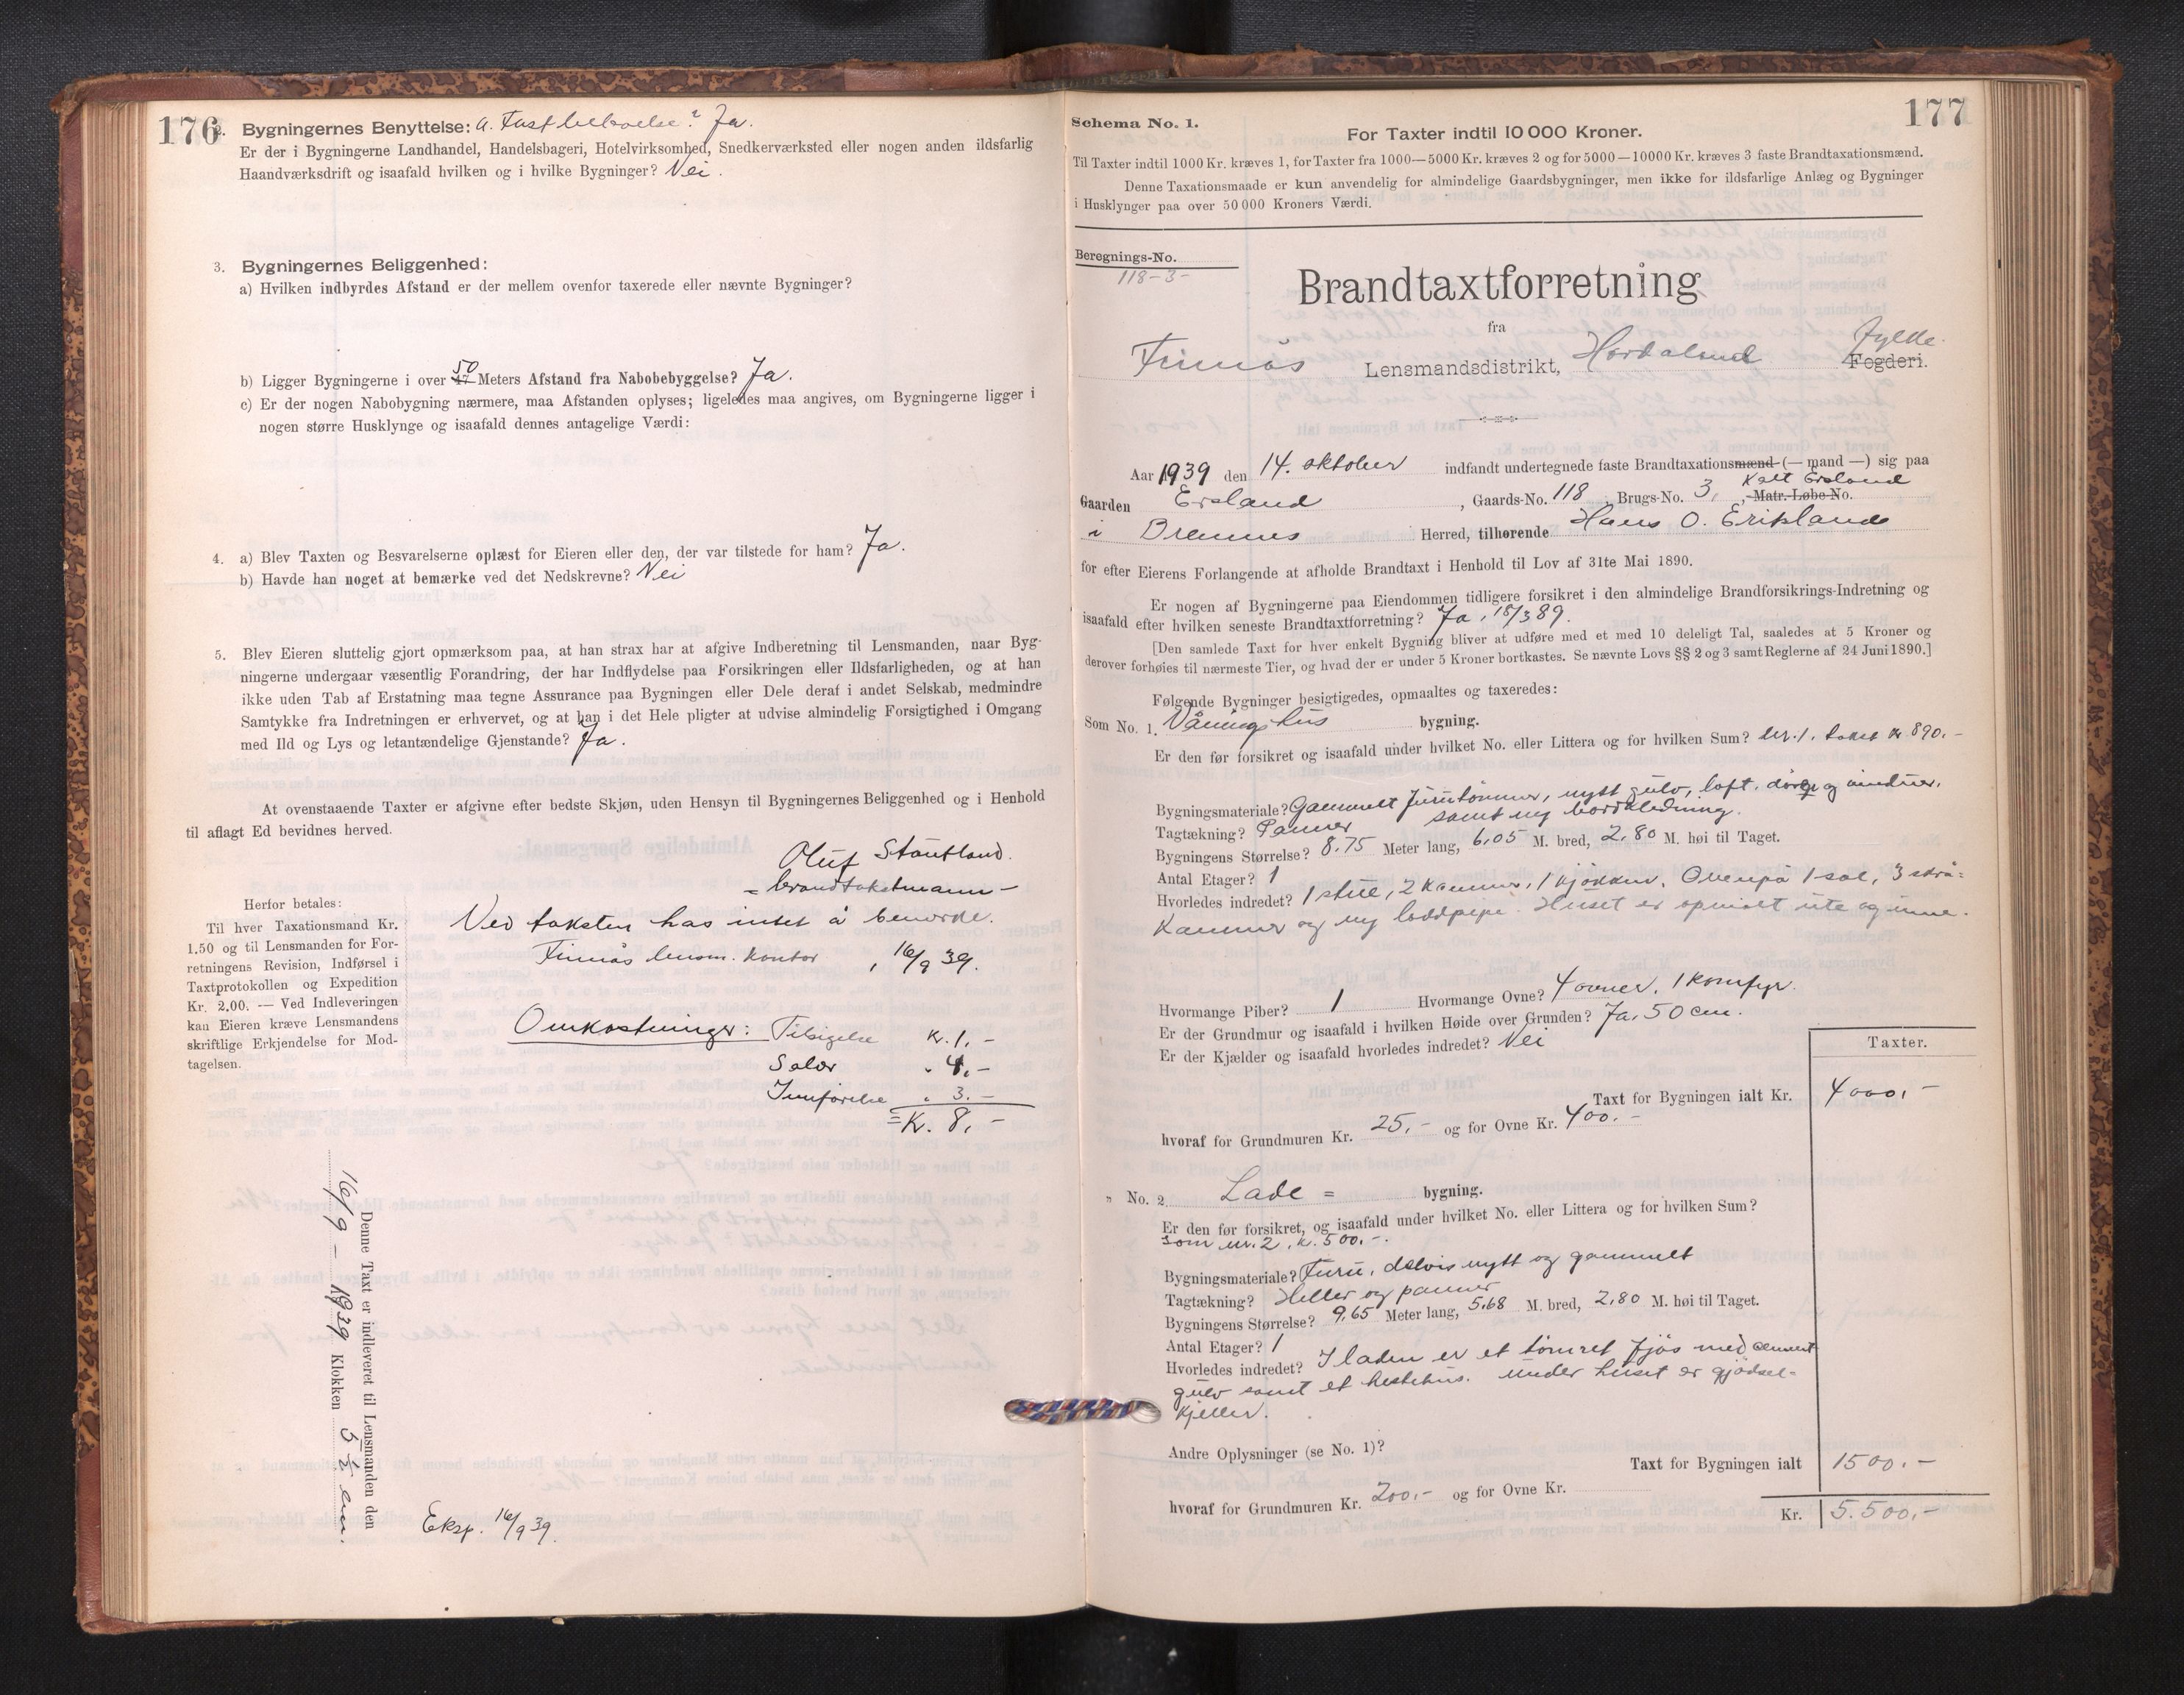 176
2. Bygningernes Benyttelse: a. Fast beboelse? Ja.
Er der i Bygningerne Landhandel, Handelsbageri, Hotelvirksomhed, Snedkerværksted eller nogen anden ildsfarlig
Haandværksdrift og isaafald hvilken og i hvilke Bygninger? Nei.
3. Bygningernes Beliggenhed:
a) Hvilken indbyrdes Afstand er der mellem ovenfor taxerede eller nævnte Bygninger?
50
b) Ligger Bygningerne i over 47 Meters Afstand fra Nabobebyggelse? Ja.
c) Er der nogen Nabobygning nærmere, maa Afstanden oplyses; ligeledes maa angives, om Bygningerne ligger i
nogen større Husklynge og isaafald dennes antagelige Værdi:
4. a) Blev Taxten og Besvarelserne oplæst for Eieren eller den, der var tilstede for ham? Ja.
b) Havde han noget at bemærke ved det Nedskrevne? Nei
5. Blev Eieren sluttelig gjort opmærksom paa, at han strax har at afgive Indberetning til Lensmanden, naar Byg-
ningerne undergaar væsentlig Forandring, der har Indflydelse paa Forsikringen eller Ildsfarligheden, og at han
ikke uden Tab af Erstatning maa tegne Assurance paa Bygningen eller Dele deraf i andet Selskab, medmindre
Samtykke fra Indretningen er erhvervet, og at han i det Hele pligter at udvise almindelig Forsigtighed i Omgang
med Ild og Lys og letantændelige Gjenstande? Ja.
At ovenstaaende Taxter er afgivne efter bedste Skjøn, uden Hensyn til Bygningernes Beliggenhed og i Henhold
til aflagt Ed bevidnes herved.
Oluf Stautland.
= brandtakstmann -
Herfor betales:
Til hver Taxationsmand Kr.
1.50 og til Lensmanden for For-
retningens Revision, Indførsel i
Taxtprotokollen og Expedition
Kr. 2.00. — Ved Indleveringen
kan Eieren kræve Lensmandens
skriftlige Erkjendelse for Mod-
tagelsen.
Ved taksten has intet å bemerke.
Finnås lensm. kontor, 16/9 39.
Omkostninger: Tilsigelse Kr. 1,-
Salær " 4,-
Innførelse " 3.-
= Kr. 8,-
Denne Taxt er indleveret til Lensmanden den
16/9 - 1939 Klokken 5 1/2 em.
Eksp. 16/9 39.
177
Schema No. 1.
For Taxter indtil 10 000 Kroner.
Til Taxter indtil 1000 Kr. kræves 1, for Taxter fra 1000—5000 Kr. kræves 2 og for 5000—10000 Kr. kræves 3 faste Brandtaxationsmænd.
Denne Taxationsmaade er kun anvendelig for almindelige Gaardsbygninger, men ikke for ildsfarlige Anlæg og Bygninger
i Husklynger paa over 50 000 Kroners Værdi.
Beregnings-No.
118-3-
Brandtaxtforretning
fra
Finnås Lensmandsdistrikt, Hordaland Fylke Fogderi.
Aar 1939 den 14. oktober indfandt undertegnede faste Brandtaxationsmænd (— mand —) sig paa
Gaarden Ersland, Gaards-No. 118, Brugs-No. 3, kalt Ersland Matr.-Løbe-No.
i Bremnes Herred, tilhørende Hans O. Eriksland
for efter Eierens Forlangende at afholde Brandtaxt i Henhold til Lov af 31te Mai 1890.
Er nogen af Bygningerne paa Eiendommen tidligere forsikret i den almindelige Brandforsikrings-Indretning og
isaafald efter hvilken seneste Brandtaxtforretning? Ja, 18/3 89.
[Den samlede Taxt for hver enkelt Bygning bliver at udføre med et med 10 deleligt Tal, saaledes at 5 Kroner og
derover forhøies til nærmeste Tier, og hvad der er under 5 Kroner bortkastes. Se nævnte Lovs §§ 2 og 3 samt Reglerne af 24 Juni 1890.]
Følgende Bygninger besigtigedes, opmaaltes og taxeredes:
Som No. 1. Våningshus bygning.
Er den før forsikret og isaafald under hvilket No. eller Littera og for hvilken Sum? nr. 1. takst kr 890.-
Bygningsmateriale? Gammelt furutømmer, nytt gulv, loft, dører og vinduer,
samt ny bordkledning.
Tagtækning? Panner
Bygningens Størrelse? 8,75 Meter lang, 6,05 M. bred, 2,80 M. høi til Taget.
Antal Etager? 1
Hvorledes indredet? 1 stue, 2 kammer, 1 kjøkken. Ovenpå 1 sal, 3 skrå-
kammer og ny loddpipe. Huset er opmalt ute og inne.
Hvormange Piber? 1 Hvormange Ovne? 4 ovner, 1 komfyr.
Er der Grundmur og isaafald i hvilken Høide over Grunden? Ja, 50 cm.
Er der Kjælder og isaafald hvorledes indredet? Nei
Taxter.
Taxt for Bygningen ialt Kr. 4000,-
hvoraf for Grundmuren Kr. 25,- og for Ovne Kr. 400.-
" No. 2 Lade = bygning.
Er den før forsikret, og isaafald under hvilket No. eller Littera og for hvilken Sum?
som nr. 2, kr. 500.-
Bygningsmateriale? Furu, delvis nytt og gammelt
Tagtækning? Heller og panner
Bygningens Størrelse? 9,65 Meter lang, 5,68 M. bred, 2,80 M. høi til Taget.
Antal Etager? 1
Hvorledes indredet? I laden er et tømret fjøs med cement
gulv samt et hestehus. Under huset er gjødsel-
kjeller.
Andre Oplysninger (se No. 1)?
Taxt for Bygningen ialt 1500.-
hvoraf for Grundmuren Kr. 200,- og for Ovne Kr.
Kr. 5.500,-